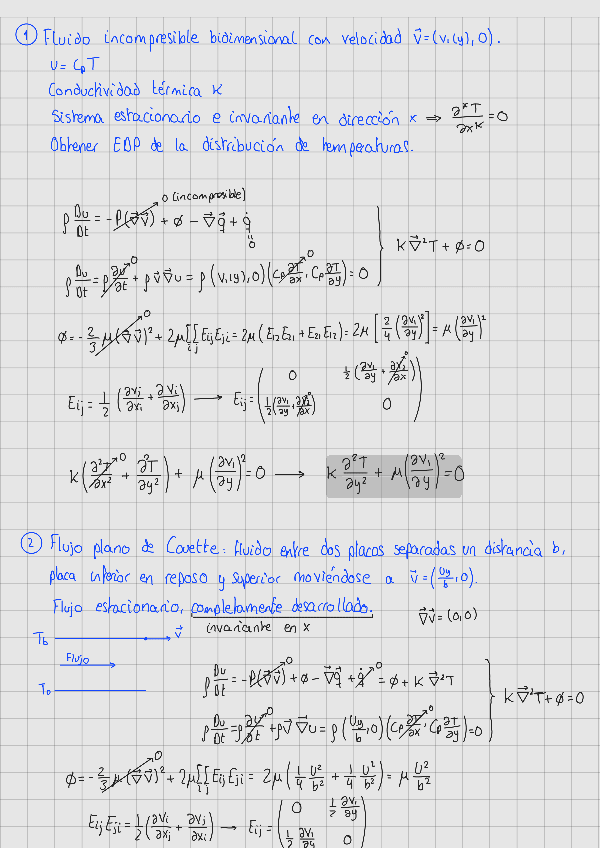 ① Fluido incompresible bidimensional con velocidad v⃗=(v₁(y), 0).
u = CₚT
Conductividad térmica K
Sistema estacionario e invariante en dirección x ⇒ ∂ᵏT/∂xᵏ = 0
Obtener EDP de la distribución de temperaturas.
0 (incompresible)
ρ Du/Dt = -P(∇⃗v⃗) + ϕ - ∇⃗q⃗ + q̇
0
K∇⃗²T + ϕ = 0
ρ Du/Dt = ρ ∂u/∂t + ρ v⃗ ∇⃗u = ρ (v₁(y), 0)(Cₚ ∂T/∂x, Cₚ ∂T/∂y) = 0
ϕ = -2/3 μ(∇⃗v⃗)² + 2μ∑ᵢ∑ⱼ EijEji = 2μ(E12E21 + E21E12) = 2μ[2/4 (∂v₁/∂y)²] = μ(∂v₁/∂y)²
Eij = 1/2 (∂vj/∂xi + ∂vi/∂xj) → Eij = (0 1/2(∂v₁/∂y + ∂v₂/∂x) 1/2(∂v₁/∂y + ∂v₂/∂x) 0)
K(∂²T/∂x² + ∂²T/∂y²) + μ(∂v₁/∂y)² = 0 → K ∂²T/∂y² + μ(∂v₁/∂y)² = 0
② Flujo plano de Couette: fluido entre dos placas separadas un distancia b,
placa inferior en reposo y superior moviéndose a v⃗ = (Uy/b, 0).
Flujo estacionario, completamente desarrollado.
invariante en x
∇⃗v⃗ = (0,0)
T_b v⃗
Flujo
T₀
ρ Du/Dt = -P(∇⃗v⃗) + ϕ - ∇⃗q⃗ + q̇ = ϕ + K∇⃗²T
K∇⃗²T + ϕ = 0
ρ Du/Dt = ρ ∂u/∂t + ρv⃗ ∇⃗u = ρ(Uy/b, 0)(Cₚ ∂T/∂x, Cₚ ∂T/∂y) = 0
ϕ = -2/3 μ(∇⃗v⃗)² + 2μ∑ᵢ∑ⱼ EijEji = 2μ(1/4 U²/b² + 1/4 U²/b²) = μ U²/b²
EijEji = 1/2 (∂vi/∂xj + ∂vj/∂xi) → Eij = (0 1/2 ∂v₁/∂y 1/2 ∂v₁/∂y 0)